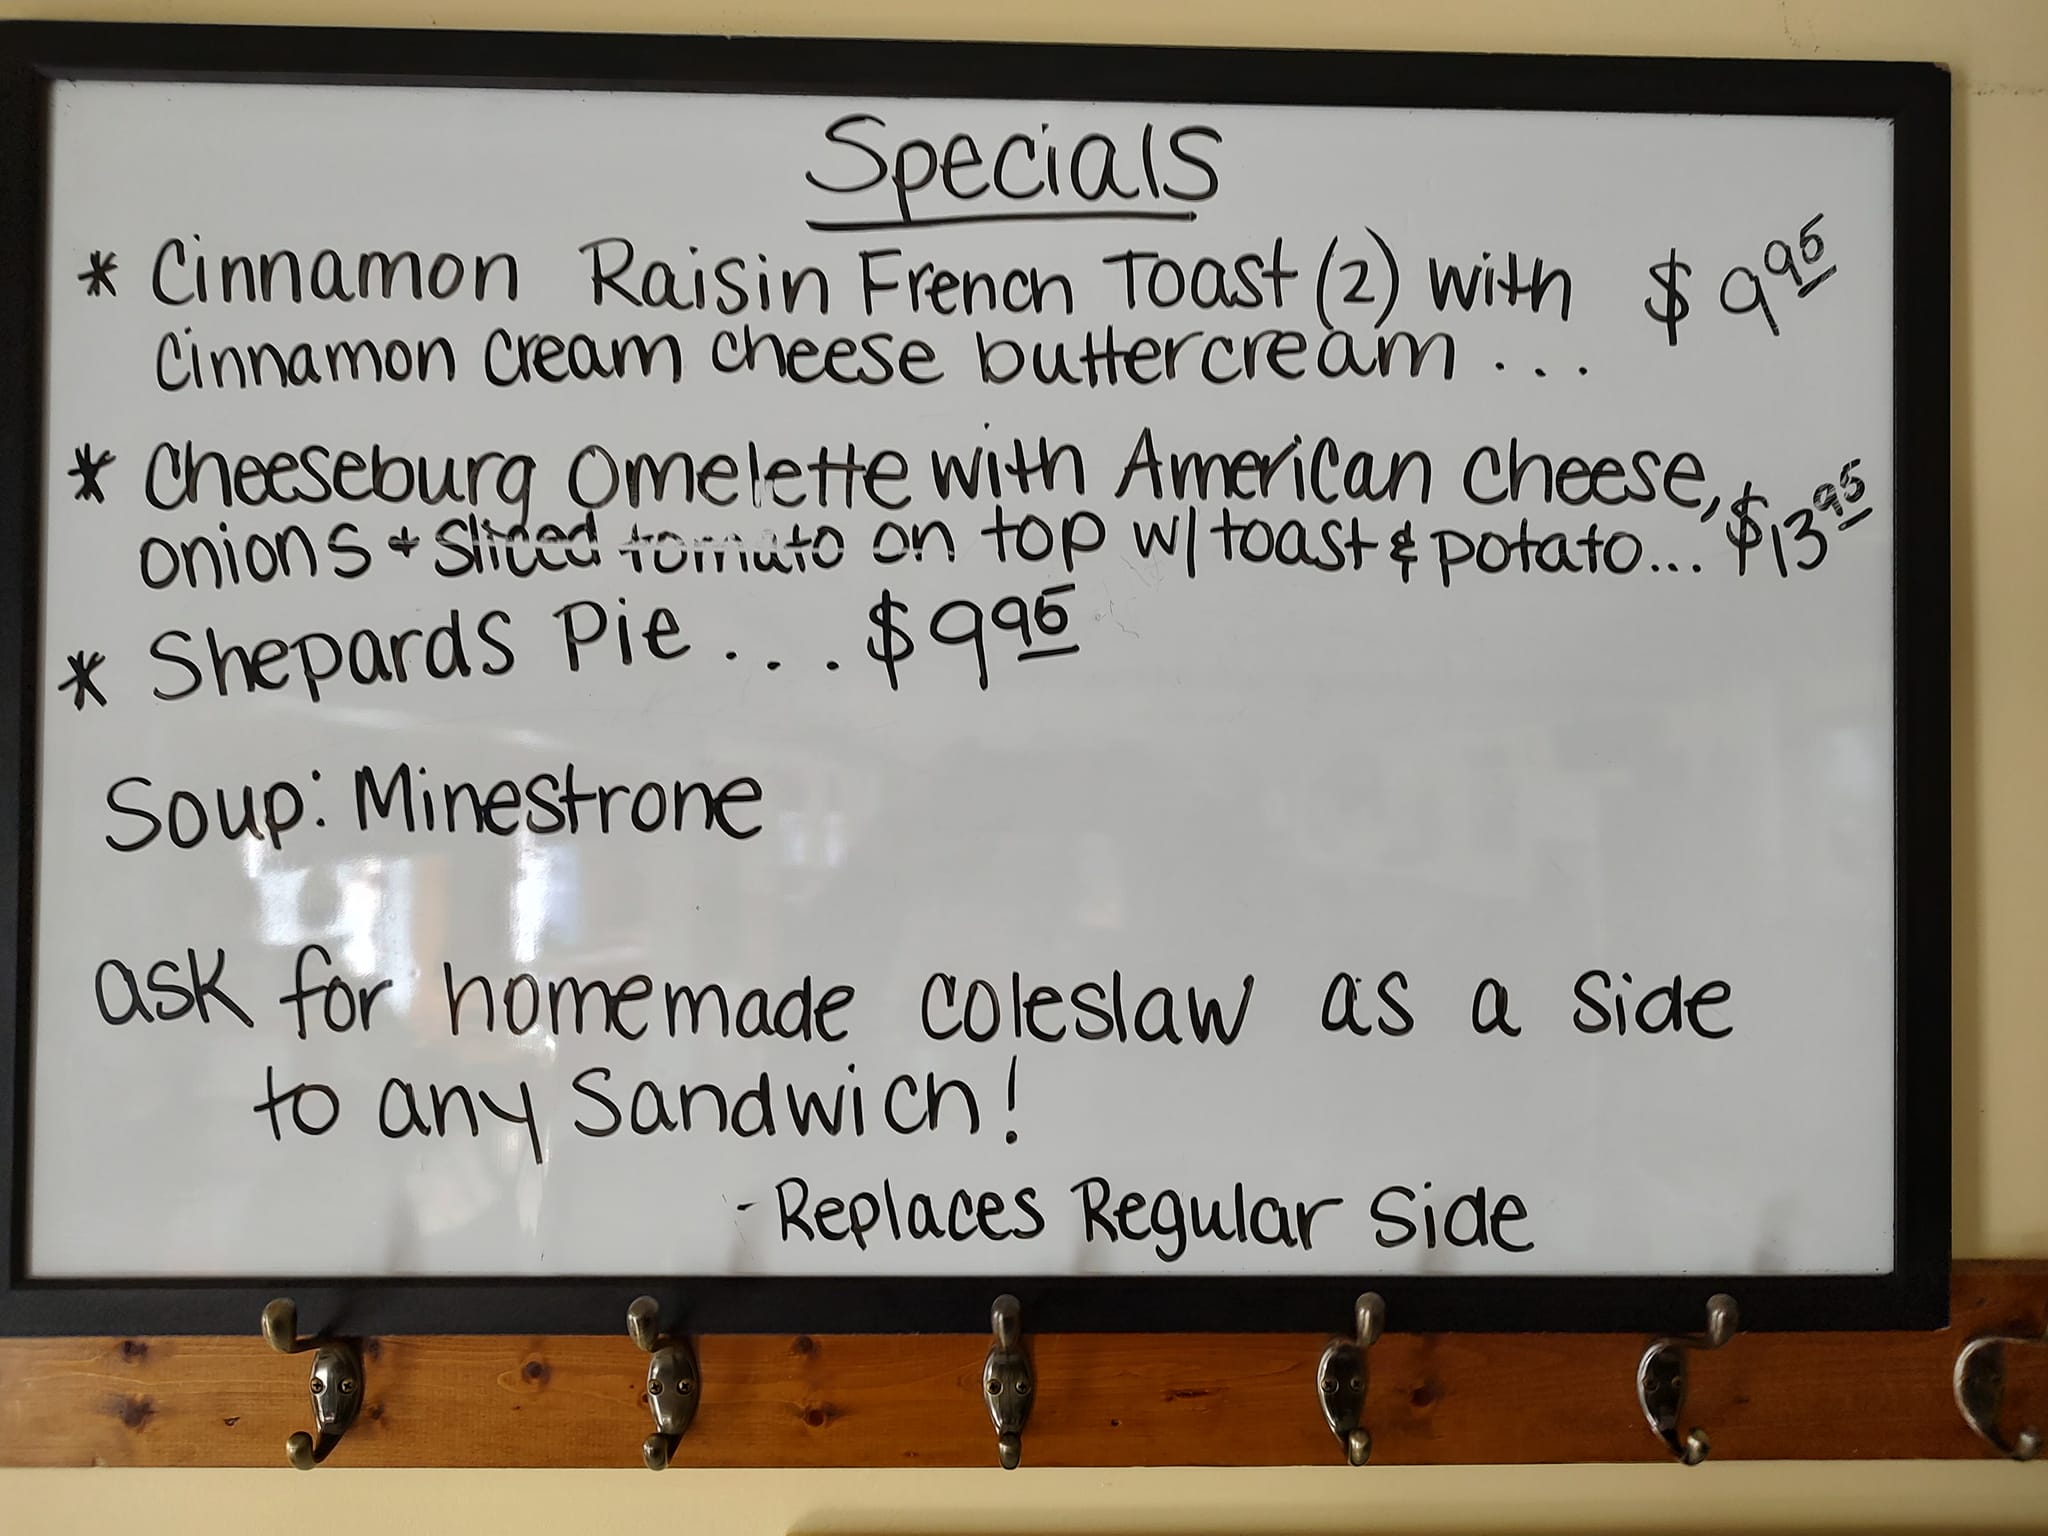 Specials
* Cinnamon Raisin French Toast (2) with $9.95
Cinnamon cream cheese buttercream ...
* Cheeseburg Omelette with American cheese,
onions + sliced tomato on top w/ toast & potato... $13.95
* Shepards Pie ... $9.95
Soup: Minestrone
ask for homemade coleslaw as a side
to any Sandwich!
- Replaces Regular side